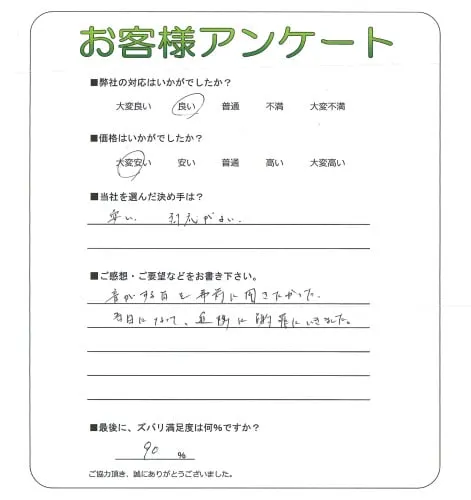 お客様アンケート
■弊社の対応はいかがでしたか？
大変良い 良い 普通 不満 大変不満
■価格はいかがでしたか？
大変安い 安い 普通 高い 大変高い
■当社を選んだ決め手は？
安い 対応がよい.
■ご感想・ご要望などをお書き下さい。
音がする日を事前に聞きたかった.
当日になって、近隣に謝罪にいきました。
■最後に、ズバリ満足度は何％ですか？
90 ％
ご協力頂き、誠にありがとうございました。